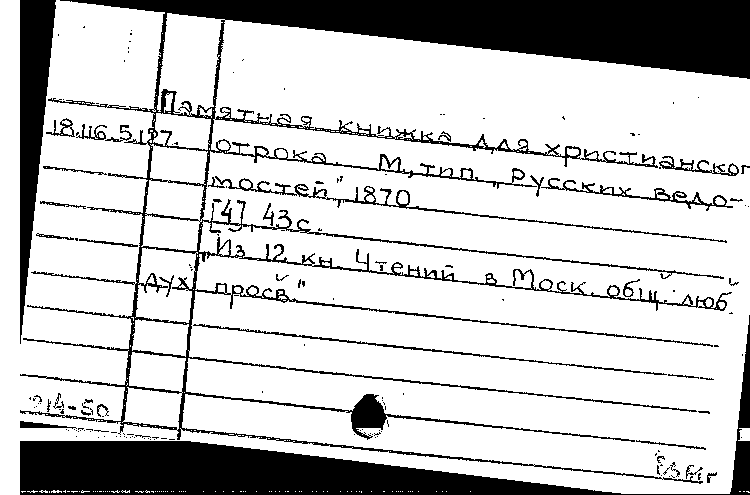 Памятная книжка для христианског
18.116.5.127. отрока. М., тип. „Русских ведо-
мостей", 1870.
[4], 43 с.
„Из 12 кн. Чтений в Моск. общ. люб.
дух. просв."
214-50